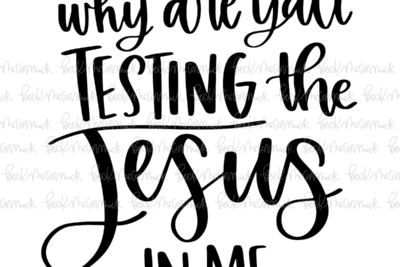 why are y'all
TESTING the
Jesus
IN ME